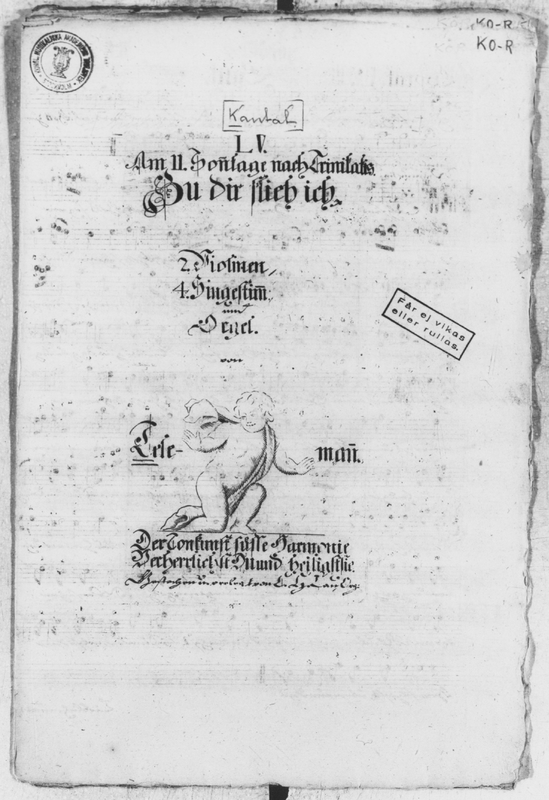 KO-R
KO-R
Kantat
L V.
Am 11. Soñtage nach Trinitatis
Zu dir flieh ich.
2. Violinen,
4. Singestim̃.
und
Orgel.
von
Tele-
mañ.
Der Tonkunst süsse Harmonie
Verherrlichst Du und heiligst sie
Får ej vikas
eller rullas.